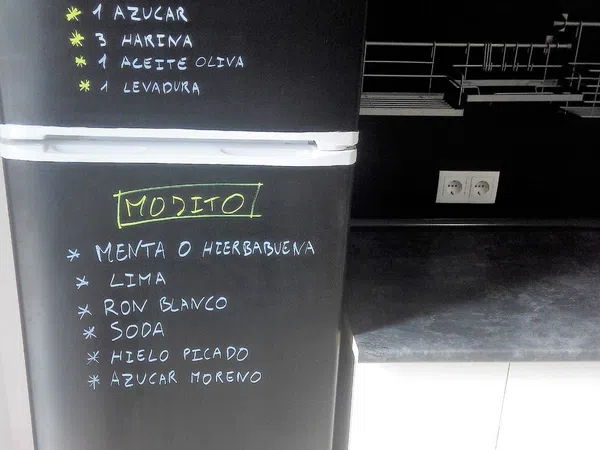 * 1 AZUCAR
* 3 HARINA
* 1 ACEITE OLIVA
* 1 LEVADURA
MOJITO
* MENTA O HIERBABUENA
* LIMA
* RON BLANCO
* SODA
* HIELO PICADO
* AZUCAR MORENO